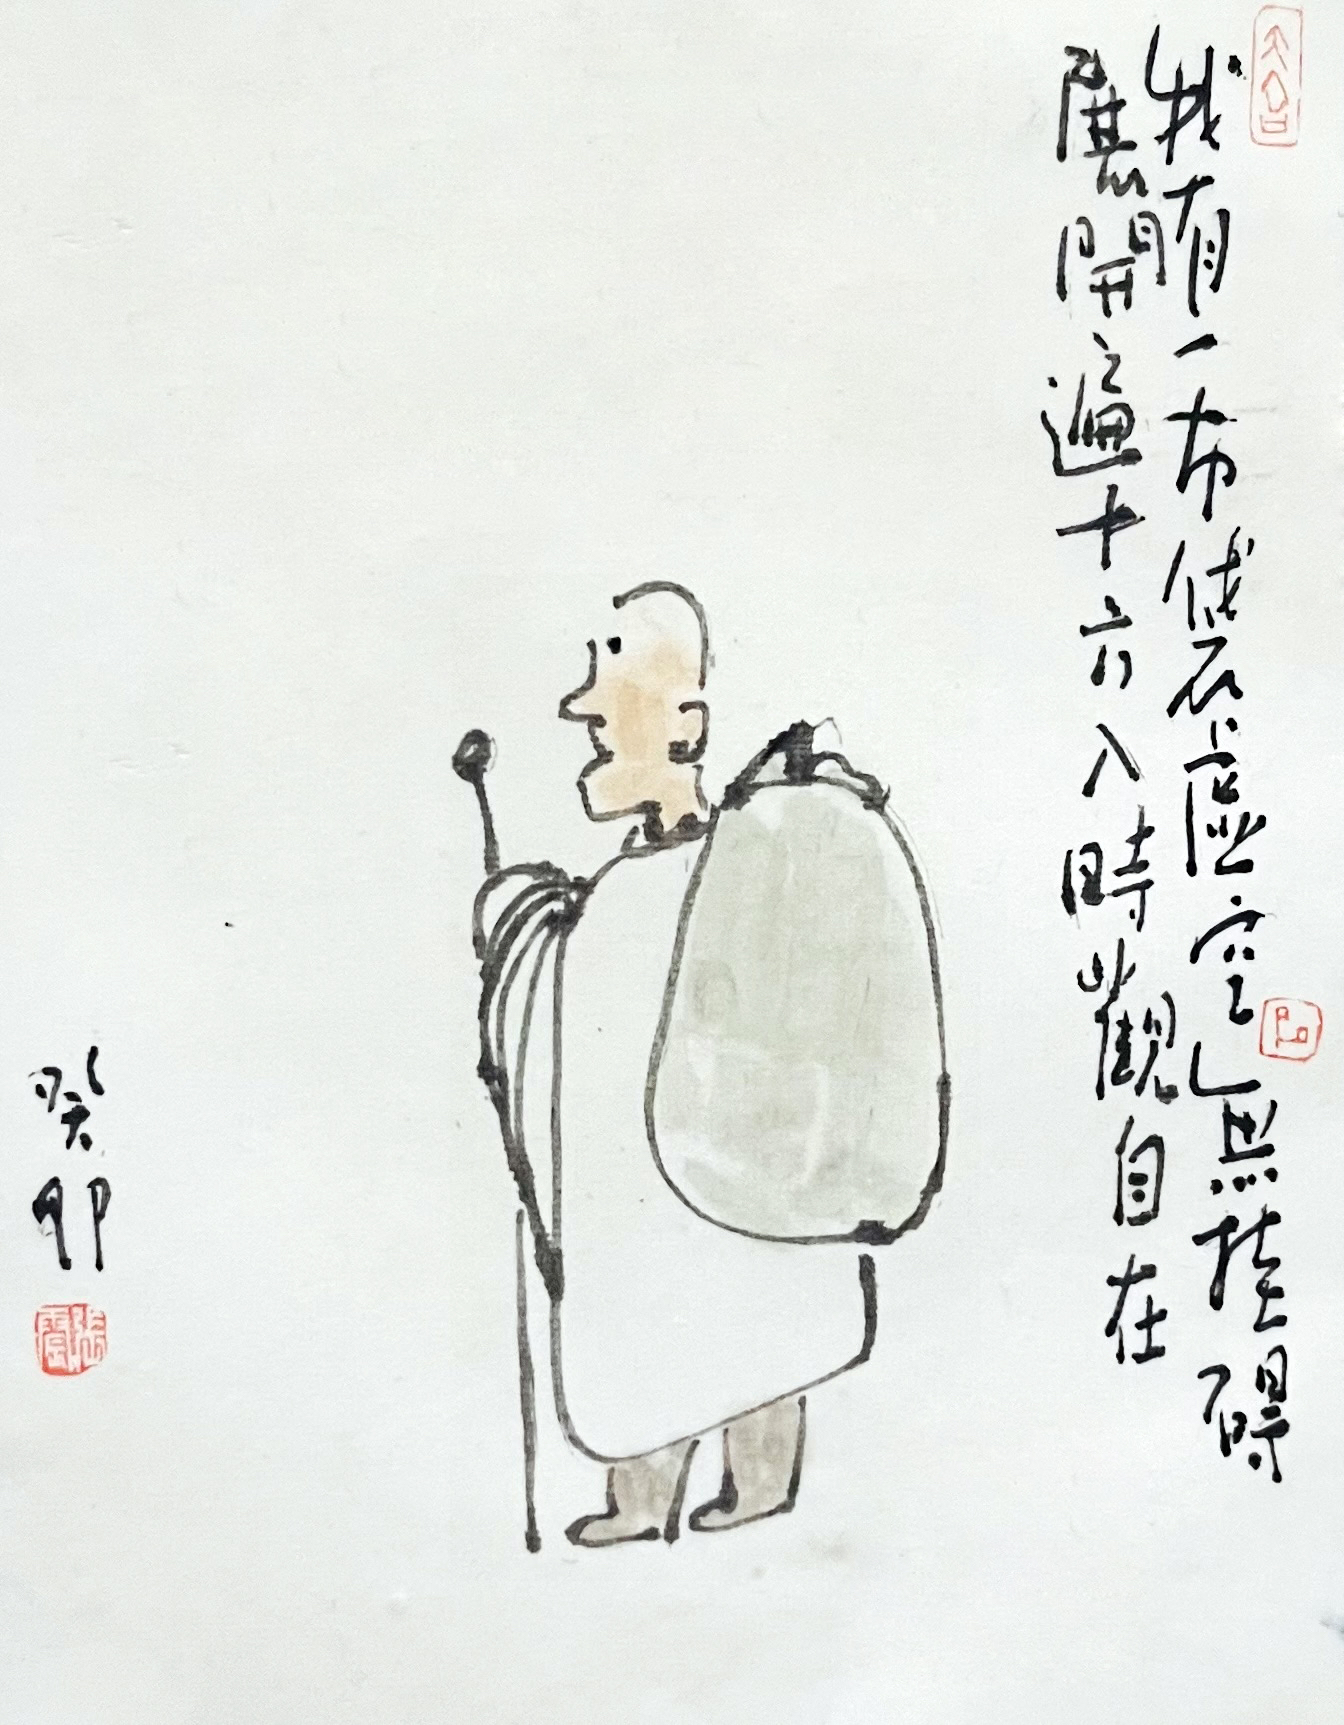 我有一布袋虛空無挂碍
展開遍十方入時觀自在
癸卯